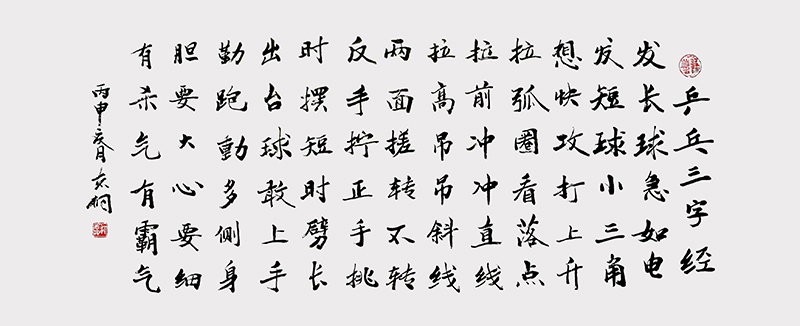 乒乓三字经
发长球急如电
发短球小三角
想快攻打上升
拉弧圈看落点
拉前冲冲直线
拉高吊吊斜线
两面搓转不转
反手拧正手挑
时摆短时劈长
出台球敢上手
勤跑動多侧身
胆要大心要细
有杀气有霸气
丙申